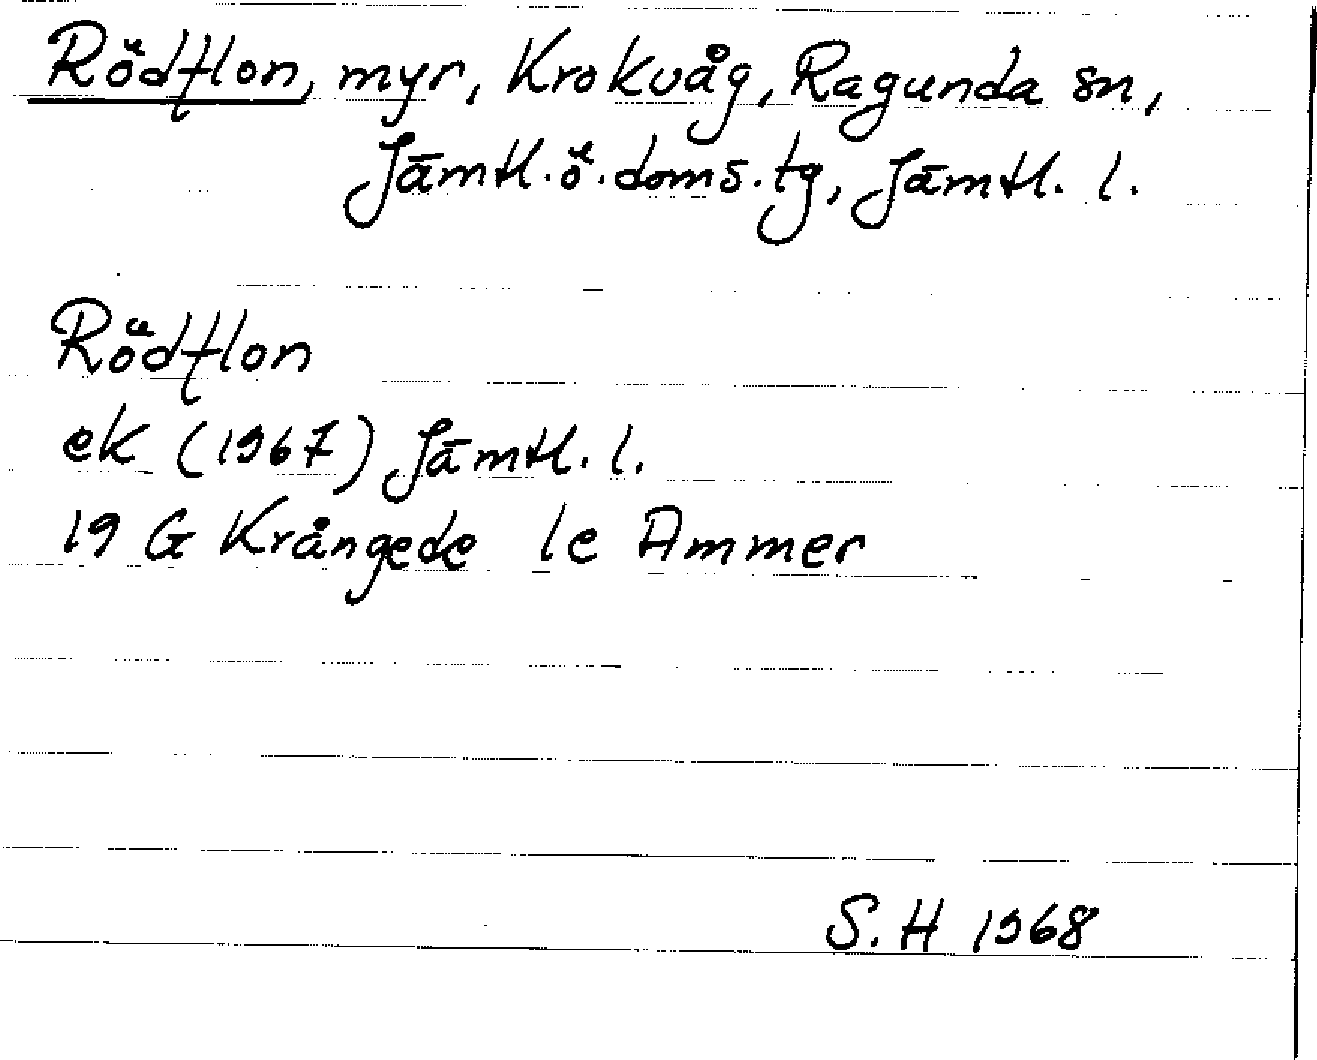 Rödflon, myr, Krokvåg, Ragunda sn,
Jämtl. ö. doms. tg, Jämtl. l.
Rödflon
ek (1967) Jämtl. l.
19 G Krångede 1e Ammer
S. H 1968